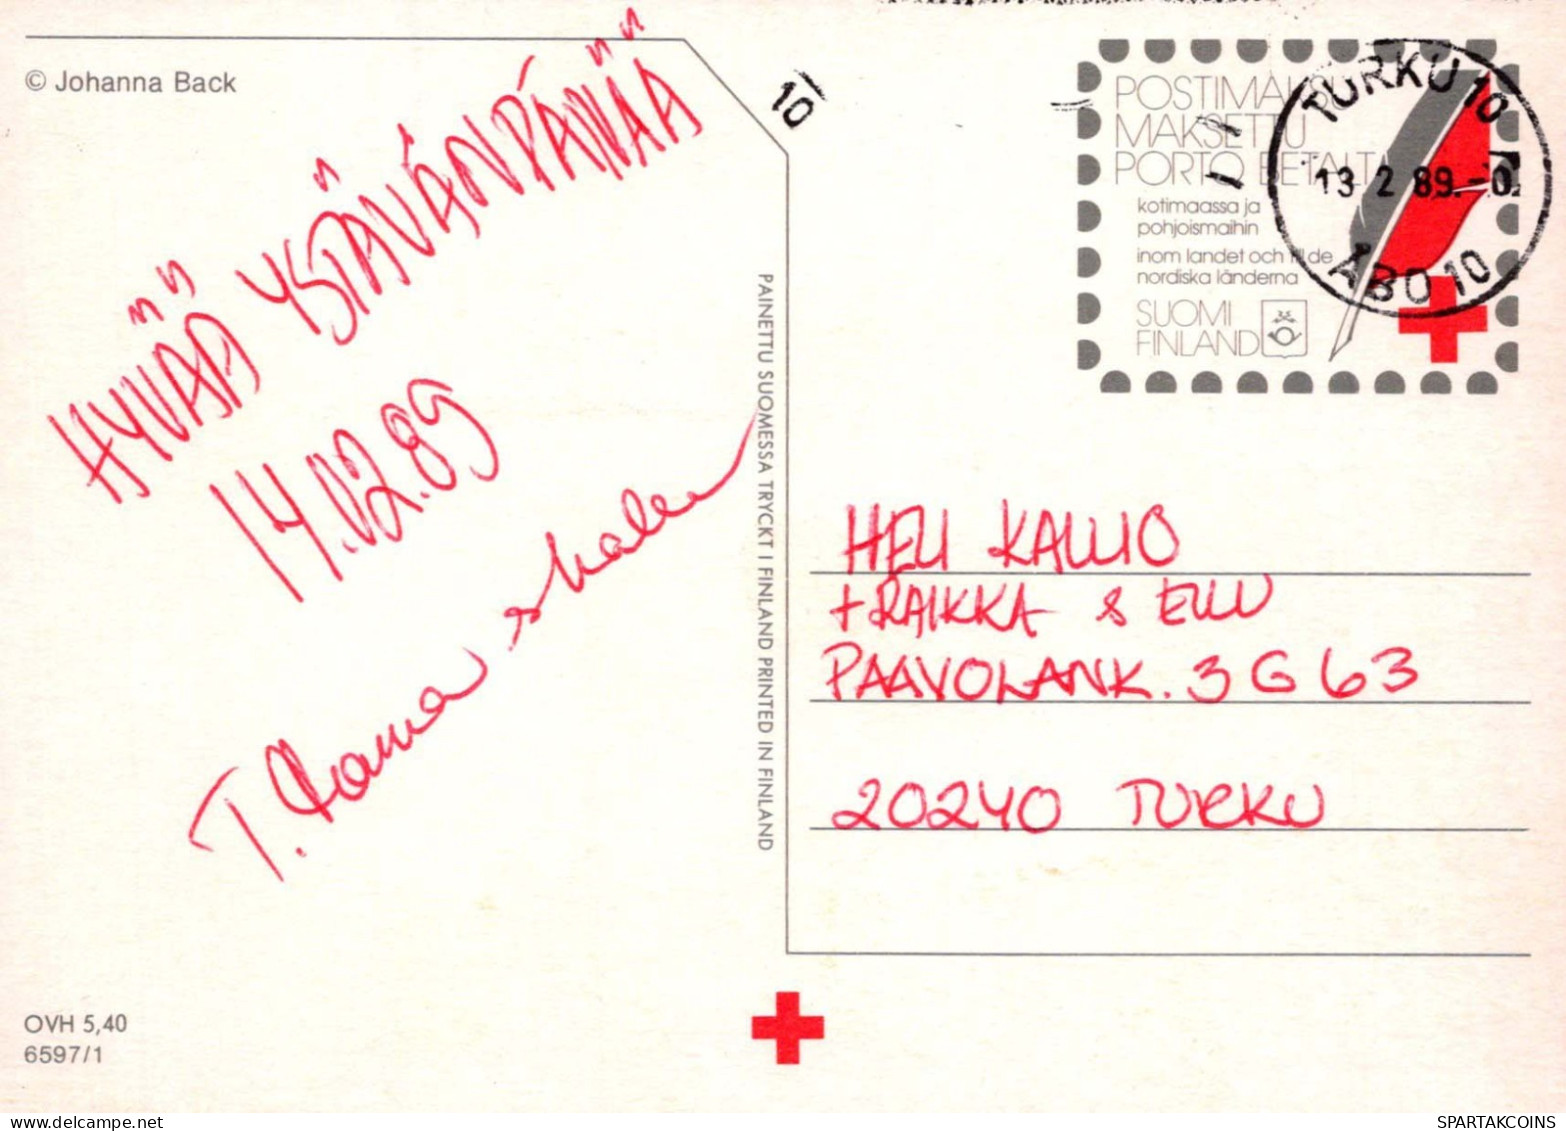 © Johanna Back
HYVÄÄ YSTÄVÄNPÄIVÄÄ
14.02.89
T.
OVH 5,40
6597/1
PAINETTU SUOMESSA TRYCKT I FINLAND PRINTED IN FINLAND
10
POSTIMAKSU
MAKSETTU
PORTO BETALT
kotimaassa ja
pohjoismaihin
inom landet och till de
nordiska länderna
SUOMI
FINLAND
TURKU 10
13 2 89.
ÅBO 10
HELI KALLIO
+ RAIKKA & ELLU
PAAVOLANK. 3 G 63
20240 TURKU
SPARTAKCOINS